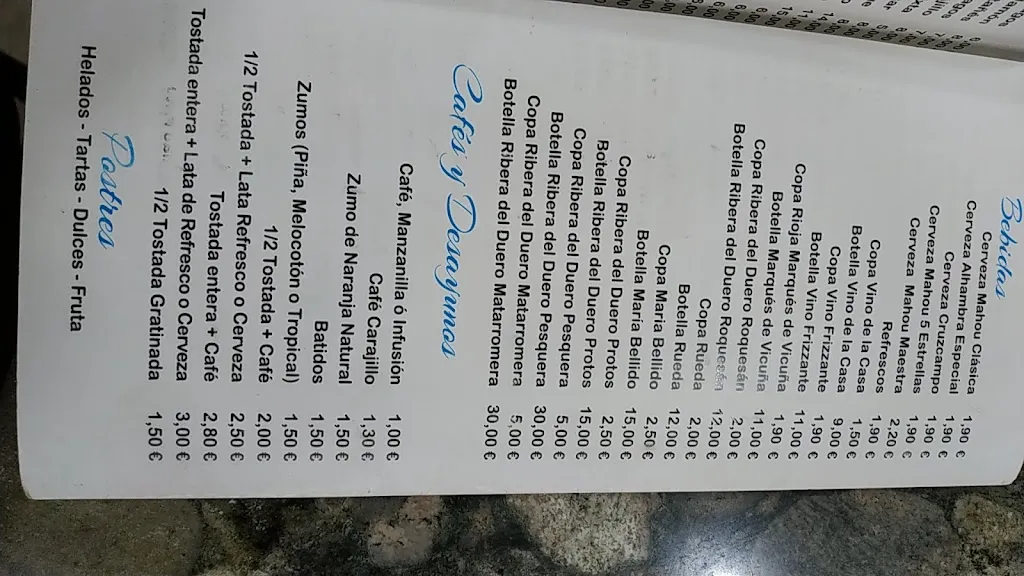 Bebidas
Cerveza Mahou Clásica 1,90 €
Cerveza Alhambra Especial 1,90 €
Cerveza Cruzcampo 1,90 €
Cerveza Mahou 5 Estrellas 1,90 €
Cerveza Mahou Maestra 2,20 €
Refrescos 1,90 €
Copa Vino de la Casa 1,50 €
Botella Vino de la Casa 9,00 €
Copa Vino Frizzante 1,90 €
Botella Vino Frizzante 11,00 €
Copa Rioja Marqués de Vicuña 1,90 €
Botella Marqués de Vicuña 11,00 €
Copa Ribera del Duero Roquesán 2,00 €
Botella Ribera del Duero Roquesán 12,00 €
Copa Rueda 2,00 €
Botella Rueda 12,00 €
Copa Maria Bellido 2,50 €
Botella Maria Bellido 15,00 €
Copa Ribera del Duero Protos 2,50 €
Botella Ribera del Duero Protos 15,00 €
Copa Ribera del Duero Pesquera 5,00 €
Botella Ribera del Duero Pesquera 30,00 €
Copa Ribera del Duero Matarromera 5,00 €
Botella Ribera del Duero Matarromera 30,00 €
Cafés y Desayunos
Café, Manzanilla ó Infusión 1,00 €
Café Carajillo 1,30 €
Zumo de Naranja Natural 1,50 €
Batidos 1,50 €
Zumos (Piña, Melocotón o Tropical) 1,50 €
1/2 Tostada + Café 2,00 €
1/2 Tostada + Lata Refresco o Cerveza 2,50 €
Tostada entera + Café 2,80 €
Tostada entera + Lata de Refresco o Cerveza 3,00 €
1/2 Tostada Gratinada 1,50 €
Postres
Helados - Tartas - Dulces - Fruta